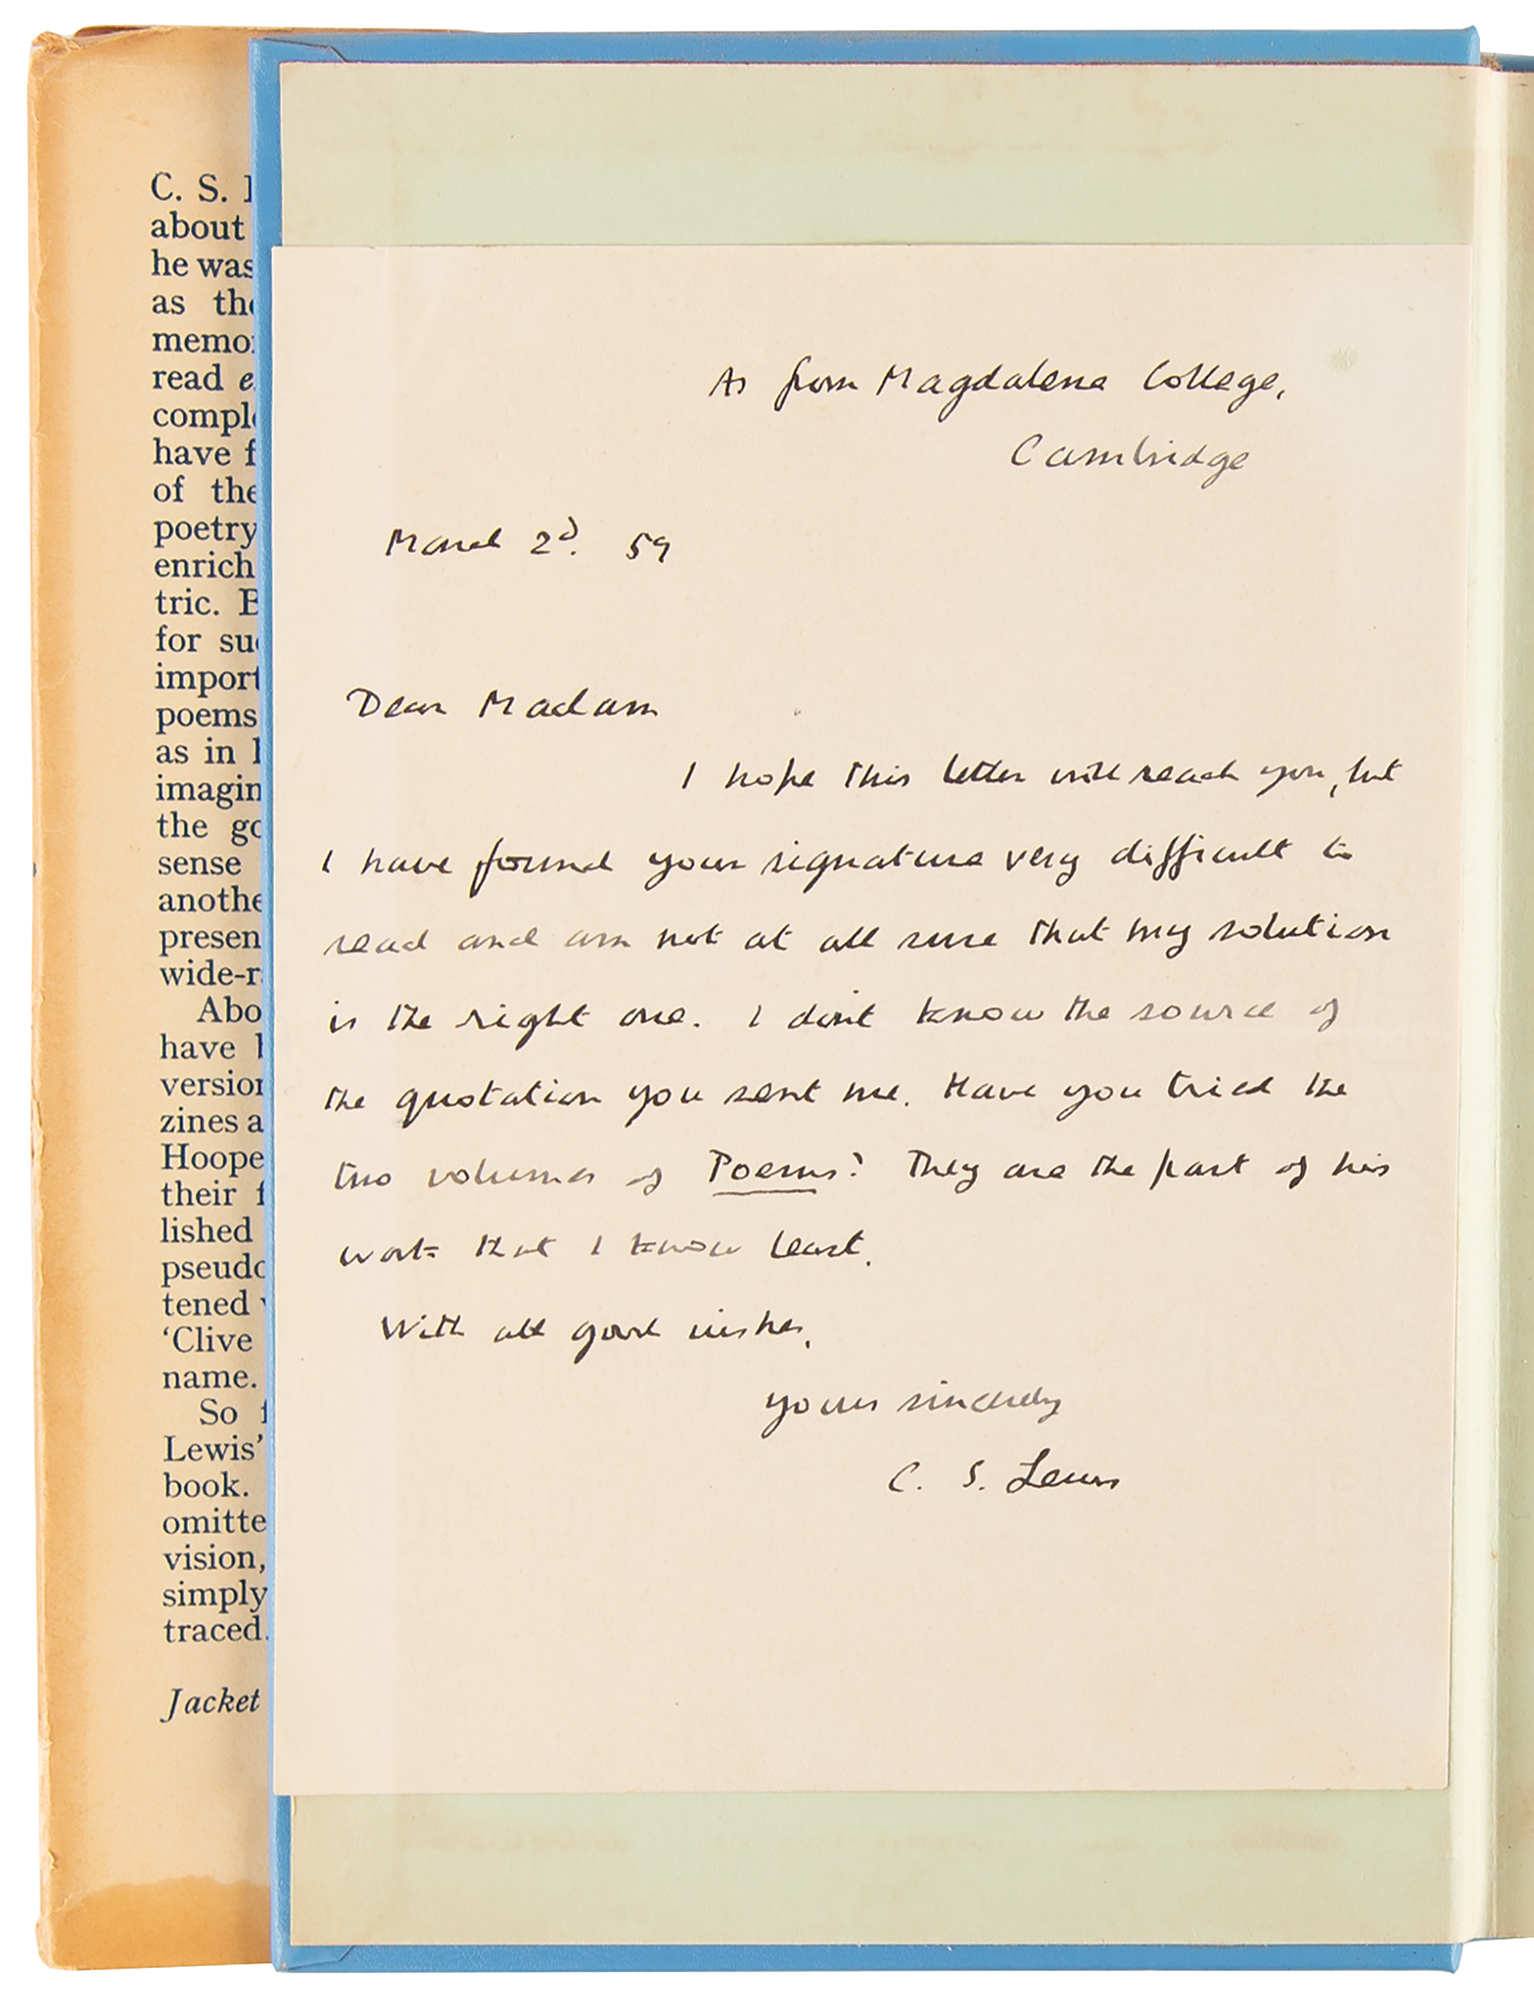 C. S.
about
he was
as the
memo
read e
compl
have f
of the
poetry
enrich
tric. B
for su
import
poems
as in
imagin
the go
sense
anothe
presen
wide-r
Abo
have
version
zines a
Hoope
their f
lished
pseudo
tened
‘Clive
name.
So f
Lewis’
book.
omitte
vision,
simply
traced.
Jacket
As from Magdalene College,
Cambridge
March 2d. 59
Dear Madam
I hope this letter will reach you, but
I have found your signature very difficult to
read and am not at all sure that my solution
is the right one. I don't know the source of
the quotation you sent me. Have you tried the
two volumes of Poems? They are the part of his
work that I know least.
With all good wishes,
yours sincerely
C. S. Lewis